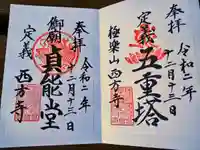 奉拝
定義
五重塔
極楽山 西方寺
令和二年
十二月十三日
奉拝
御廟
貞能堂
定義
西方寺
令和二年
十二月十三日